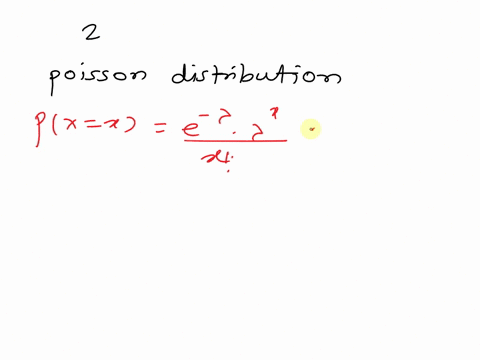 2
poisson distribution
P(x=x) = e^-λ · λ^x / x!